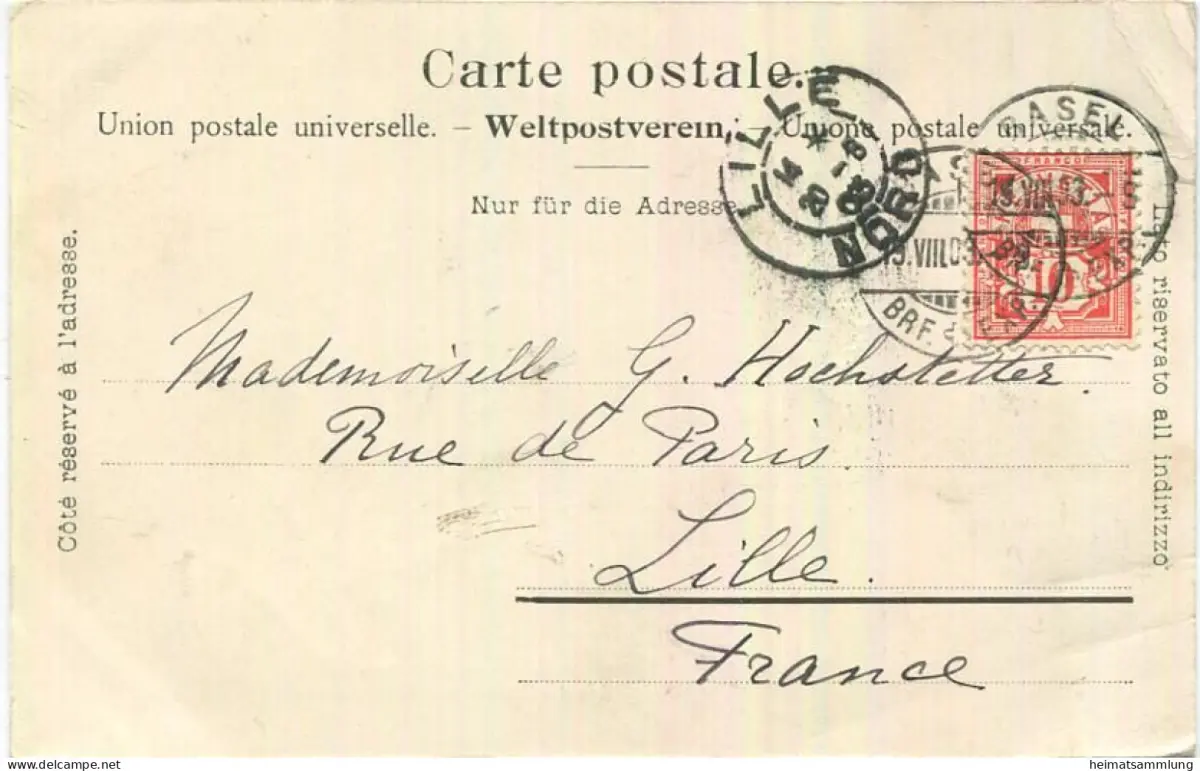 Carte postale.
Union postale universelle. – Weltpostverein. – Unione postale universale.
Nur für die Adresse
Côté réservé à l'adresse.
Lato riservato all indirizzo
LILLE
NORD
BASEL
FRANCO
13.VIII.03.
BRF.
10
Mademoiselle G. Hochstetter.
Rue de Paris.
Lille.
France
heimatsammlung